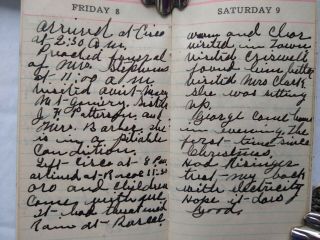 FRIDAY 8
arrived at Cisco
2:30 A.M.
Preached funeral
of Mrs. Stephens
at 11:00 A.M.
visited Aunt Mary
J. H. Patterson, and
Mrs. Barker she
is in a pitiable
Condition.
Left Cisco at 8 P.M.
arrived at
and children
Came with
it had
Rain at
SATURDAY 9
warm and clear
visited in Town
visited Criswell
found him better
visited Mrs Clark
she was sitting
up.
George came home
in evening. The
first time since
Christmas.
Had
treat my back
with electricity
Hope it does
Good